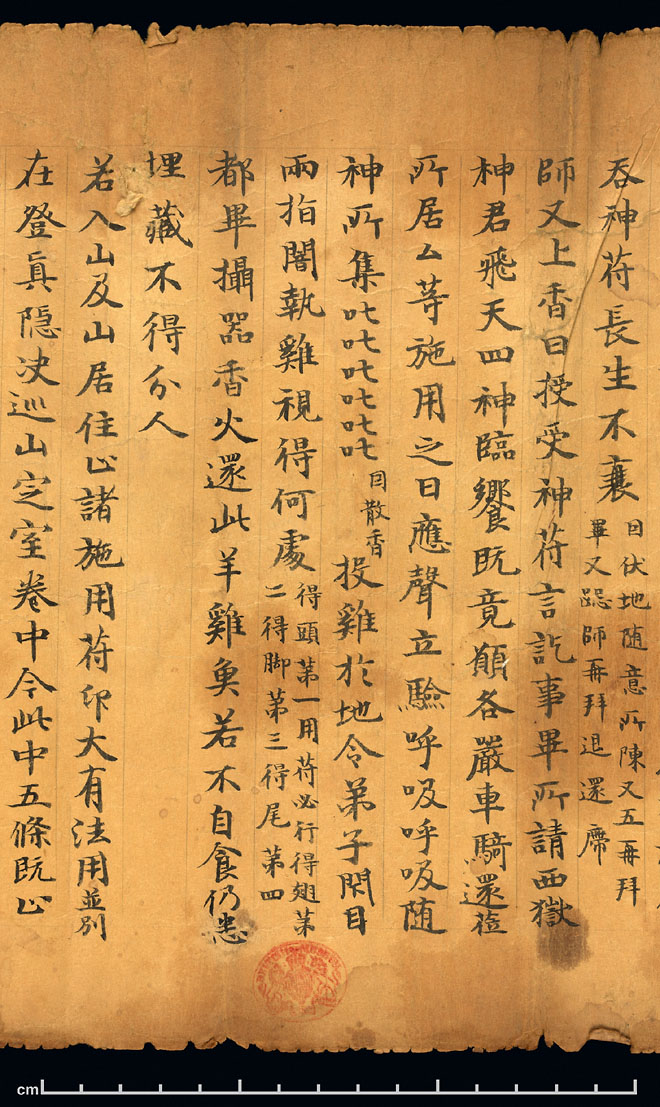 吞神苻長生不衰因伏地随意所陳又五再拜畢又跽師再拜退還席
師又上香曰授受神苻言訖事畢所請西獄
神君飛天四神臨饗既竟願各嚴車騎還莅
所居厶等施用之日應聲立驗呼吸呼吸随
神所集叱叱叱叱叱叱因散香投雞於地令弟子閇目
兩指闇執雞視得何處得頭第一用苻必行得翅第二得脚第三得尾第四
都畢攝器香火還此羊雞奠若不自食仍悉
埋藏不得分人
若入山及山居住止諸施用苻印大有法用並別
在登真隠决巡山定室卷中令此中五條既止
cm